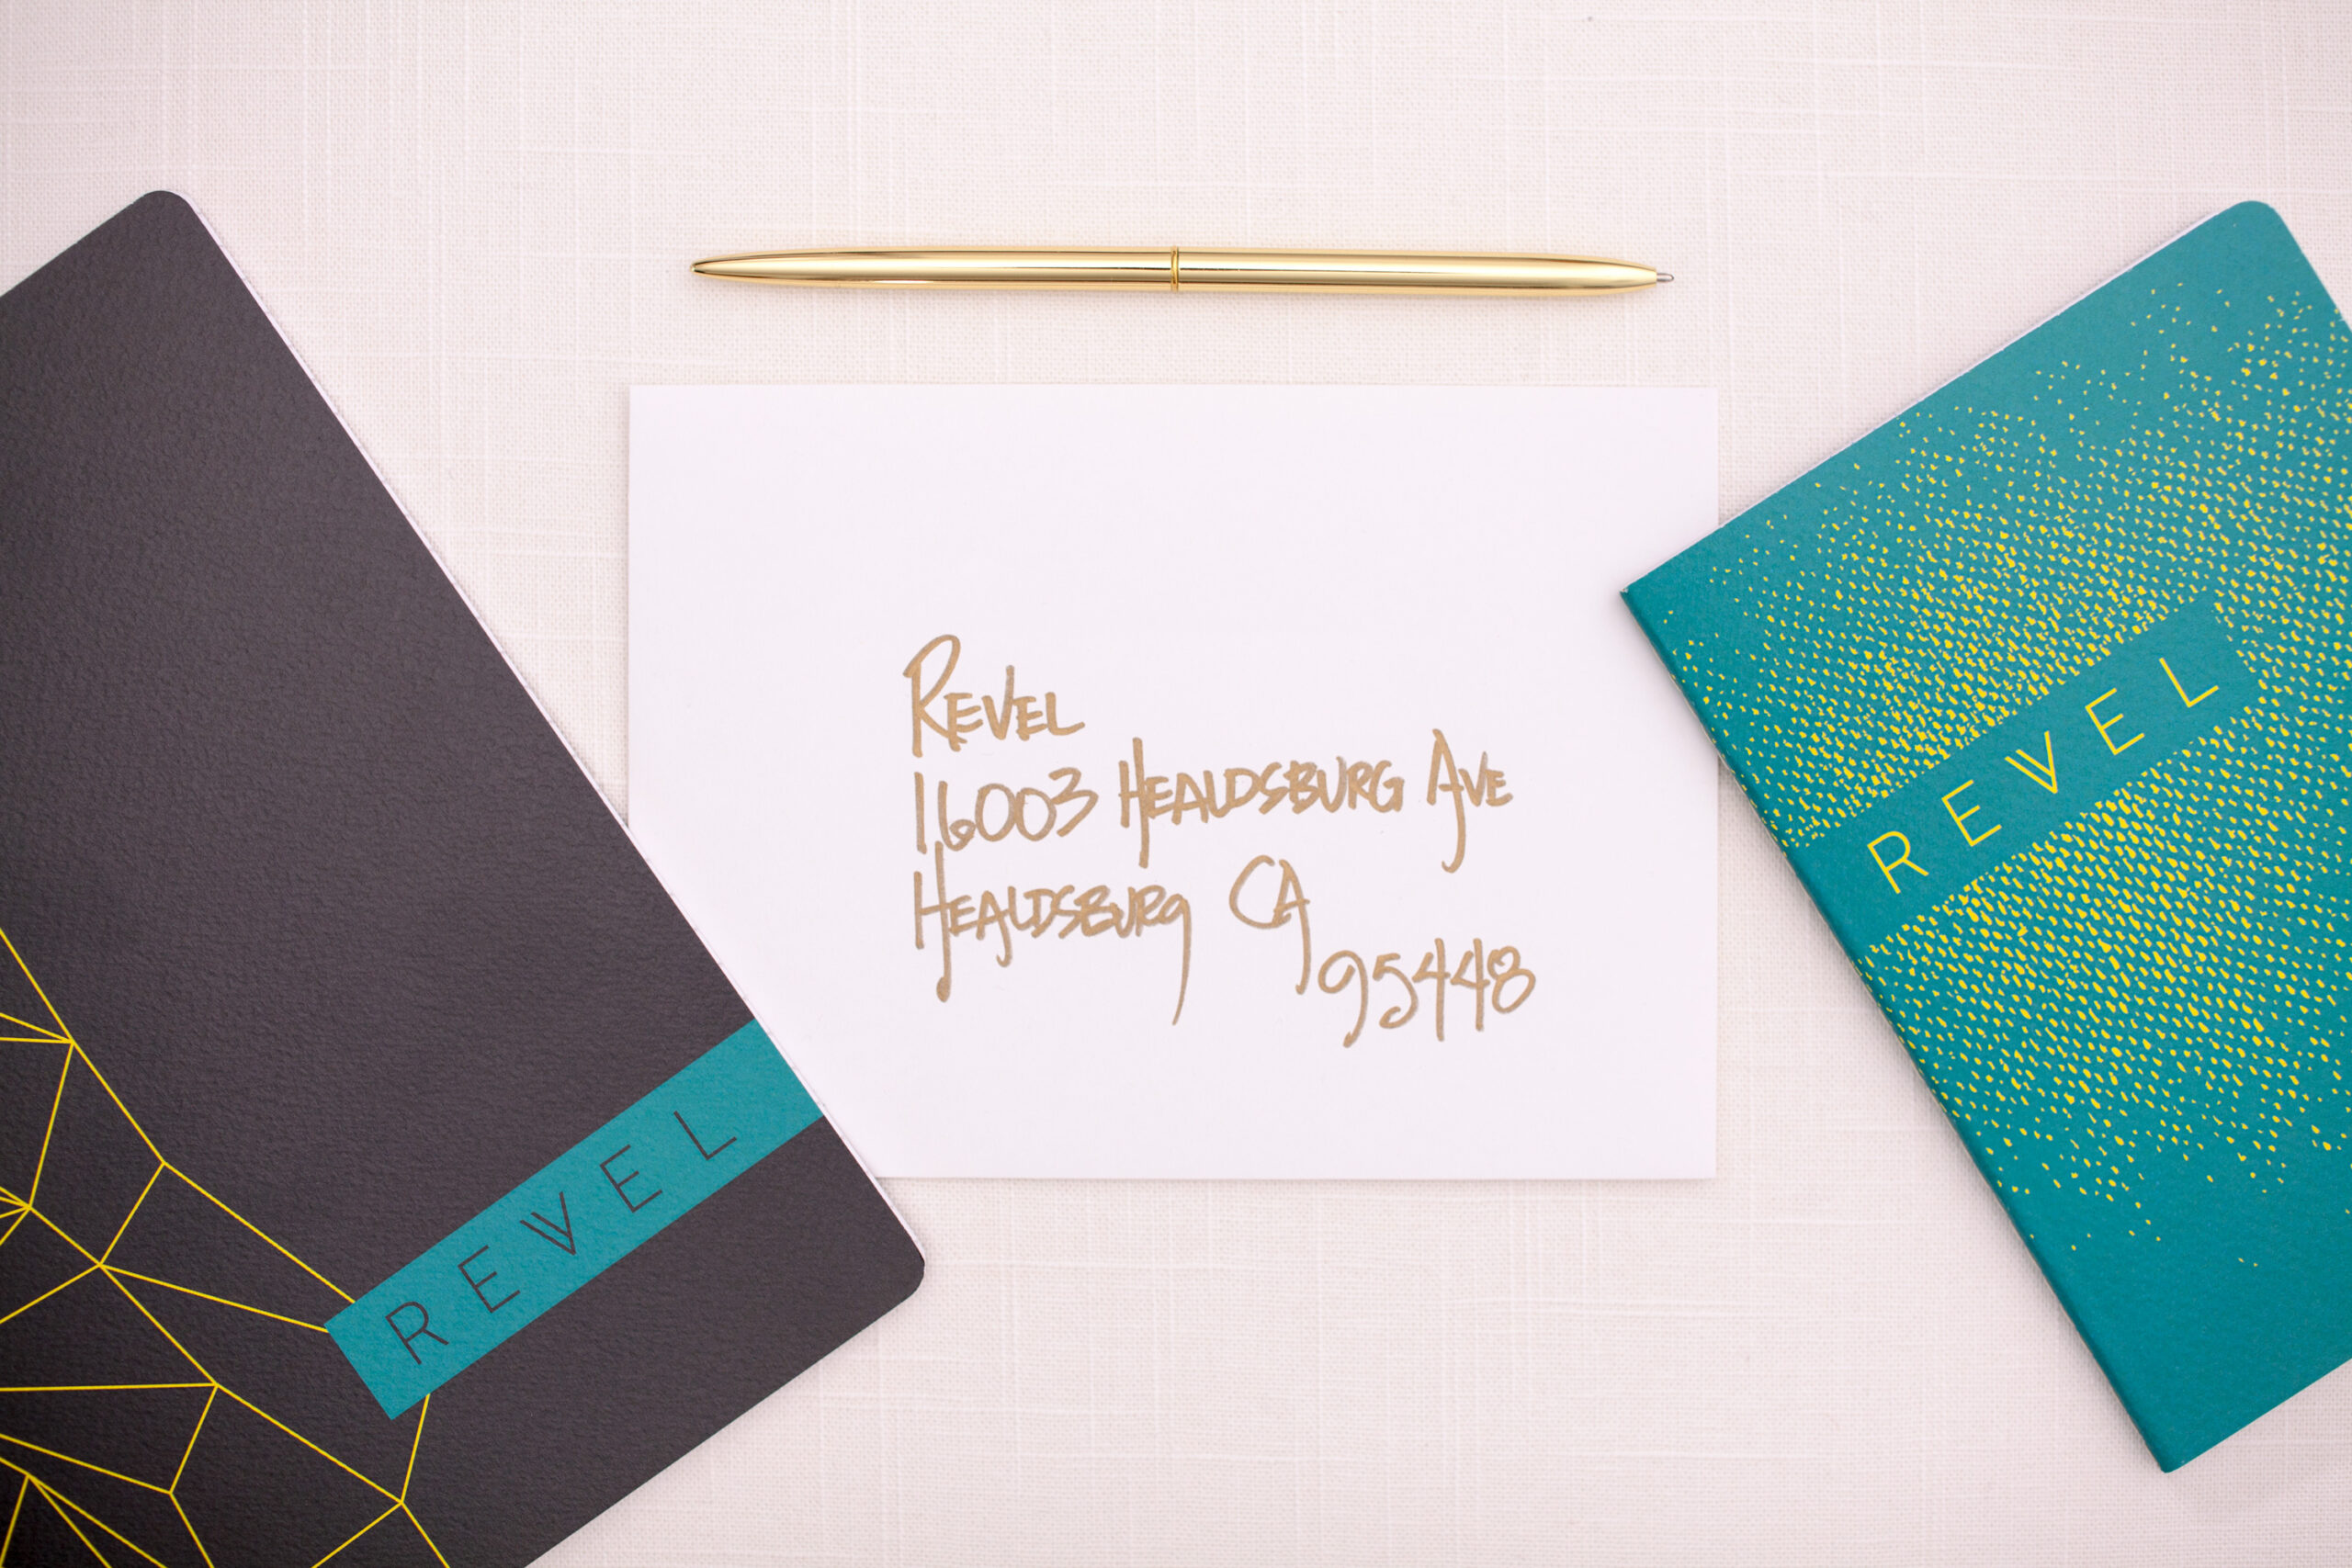 REVEL
16003 HEALDSBURG AVE
HEALDSBURG CA
95448
REVEL
REVEL